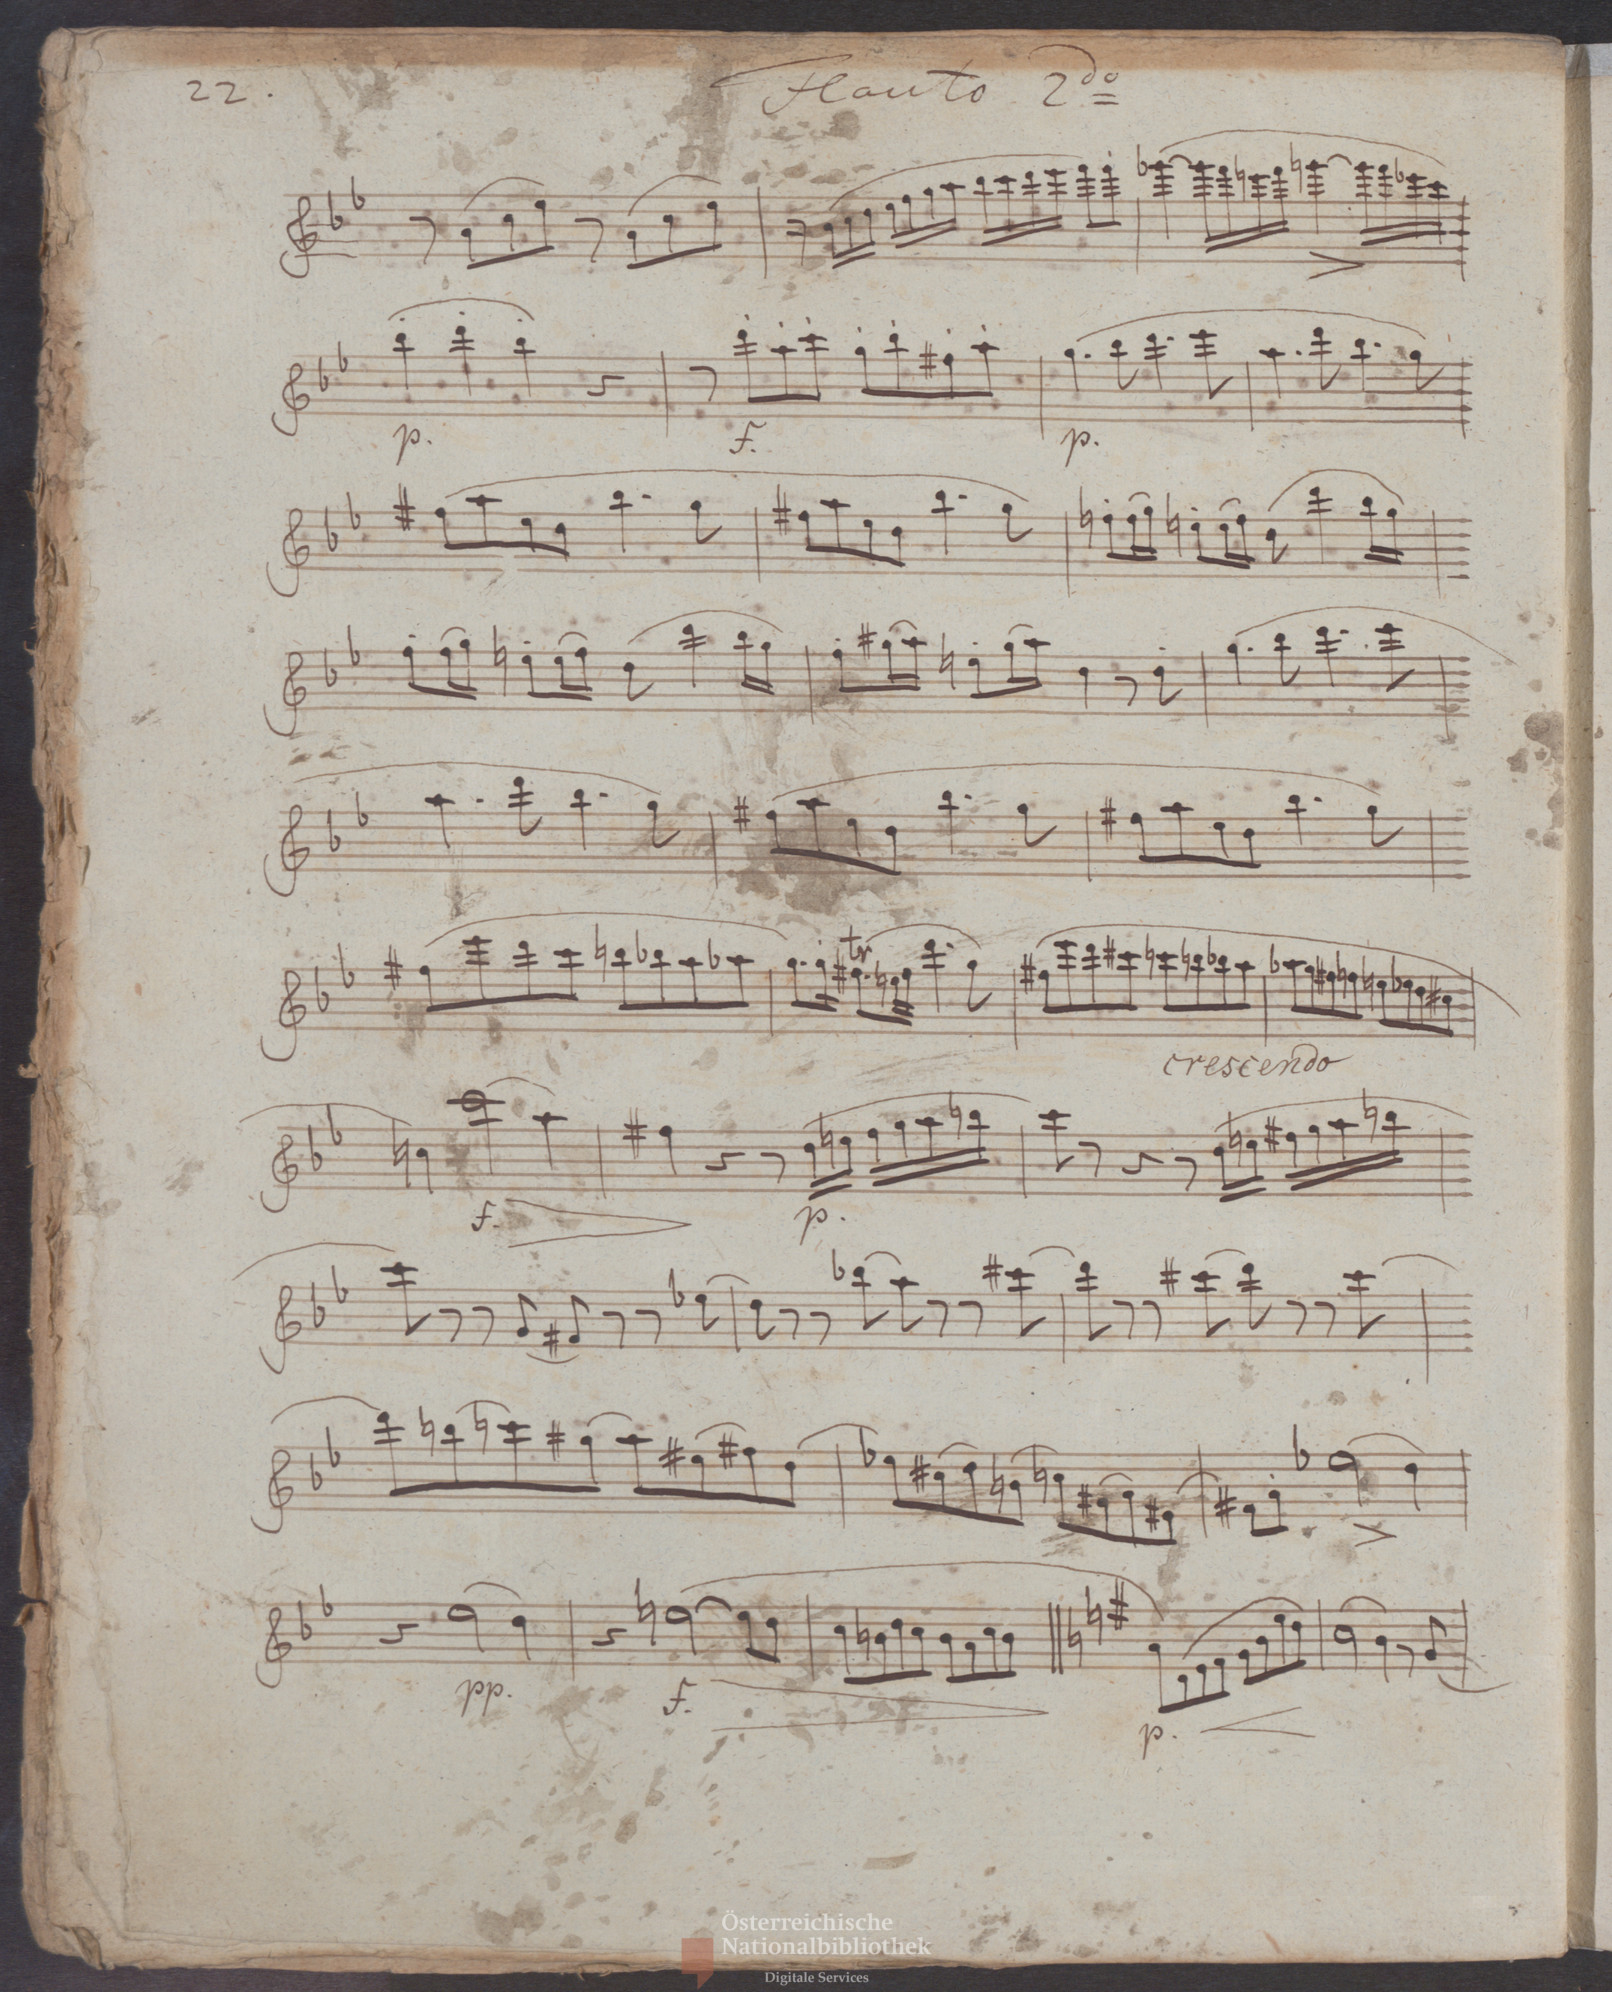 22.
Flauto 2do
p. f. p.
tr
crescendo
f. p.
pp. f. p.
Österreichische
Nationalbibliothek
Digitale Services